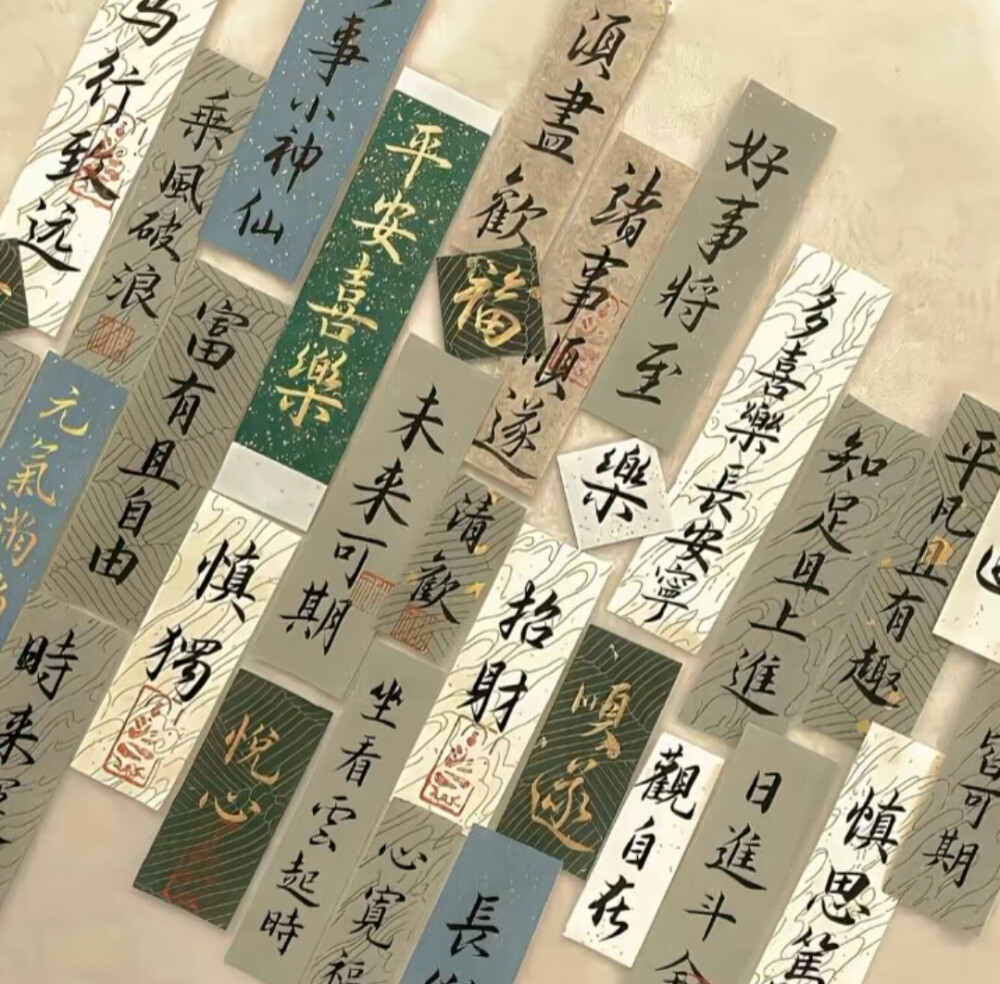 马行致远
乘風破浪
事小神仙
平安喜樂
須盡歡
福
諸事順遂
好事将至
多喜樂長安寧
樂
知足且上進
平凡且有趣
富有且自由
元氣满
未来可期
清歡
慎獨
招財
順遂
悦心
坐看雲起時
時来
心寬福
長
觀自在
日進斗金
慎思篤
皆可期